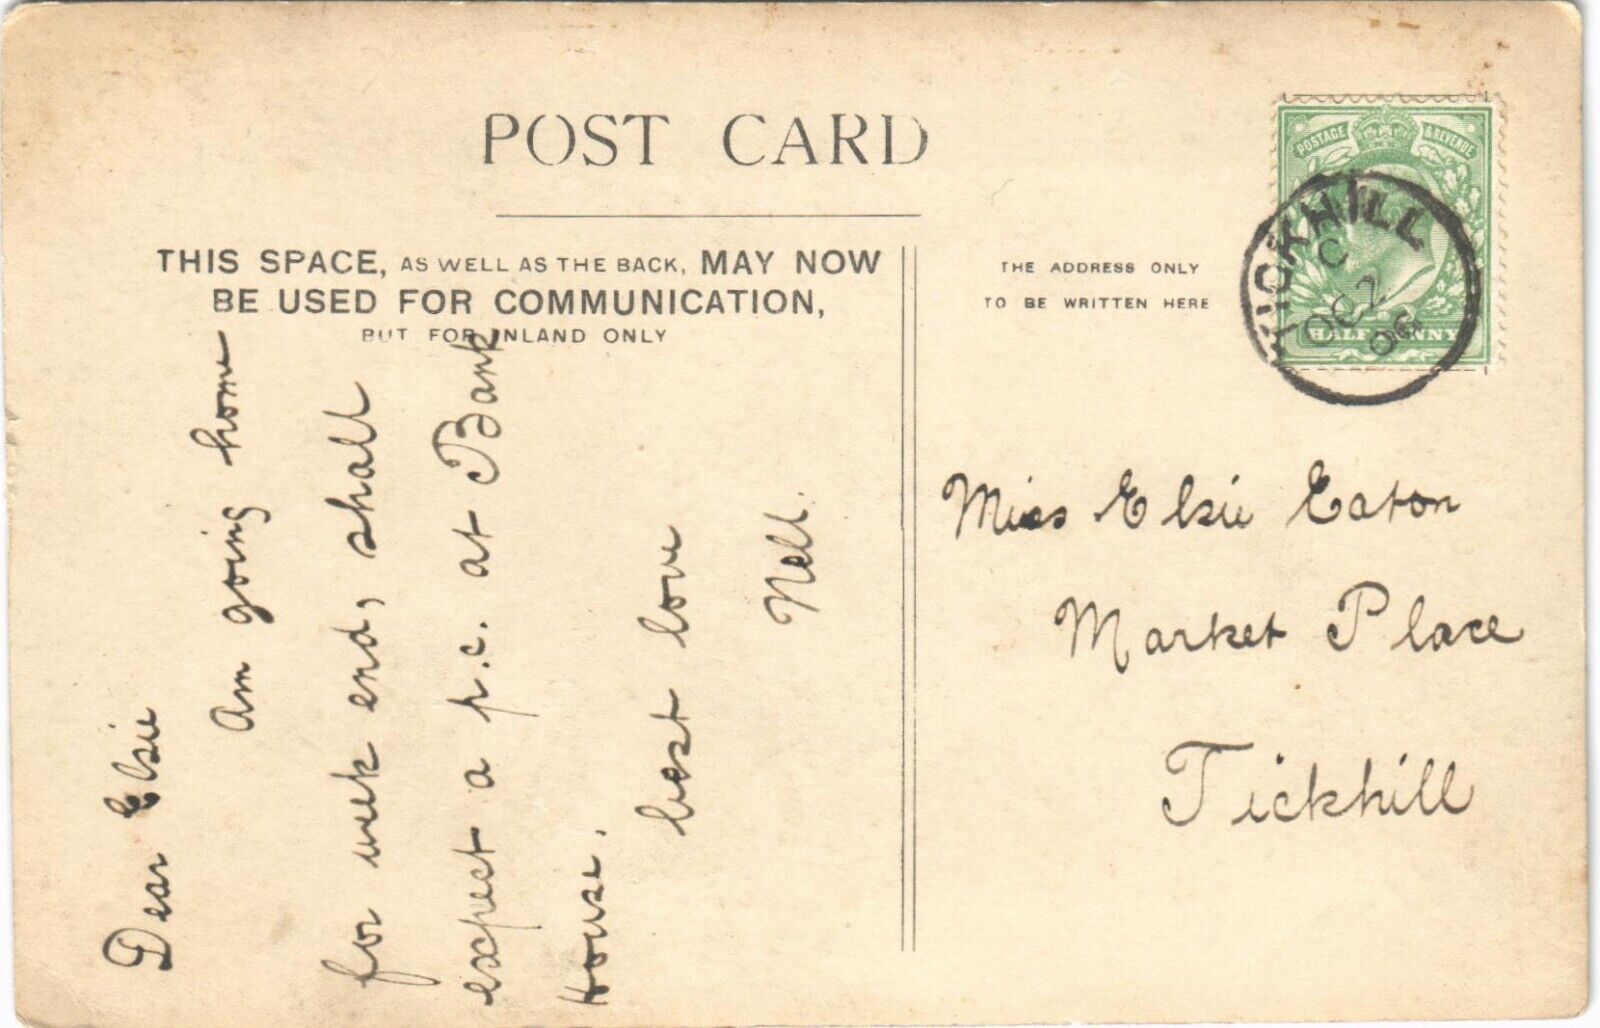 POST CARD
THIS SPACE, AS WELL AS THE BACK, MAY NOW
BE USED FOR COMMUNICATION,
BUT FOR INLAND ONLY
THE ADDRESS ONLY
TO BE WRITTEN HERE
POSTAGE & REVENUE
HALFPENNY
TICKHILL
C
OC 2
06
Dear Elsie
Am going home
for week end, shall
expect a p.c. at Bank
House.
best love
Nell.
Miss Elsie Eaton
Market Place
Tickhill